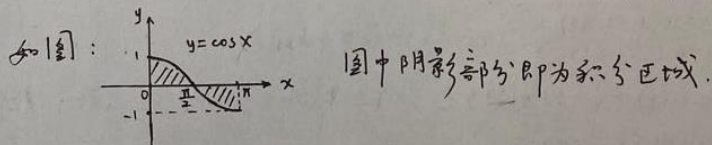 如图：
y
1
y=cosx
0
π/2
π
x
-1
图中阴影部分即为积分区域.